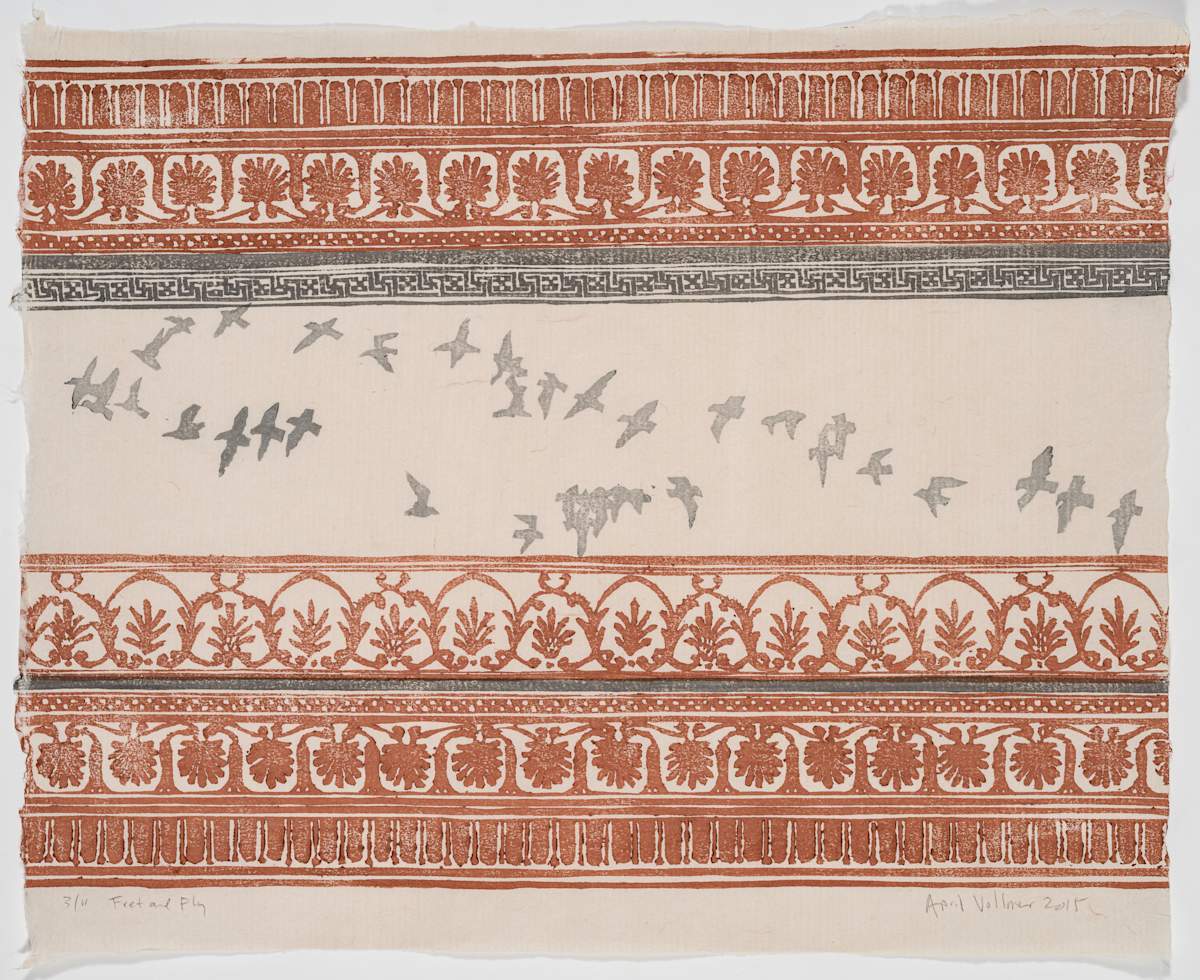 3/11 Fret and Fly
April Vollmer 2015